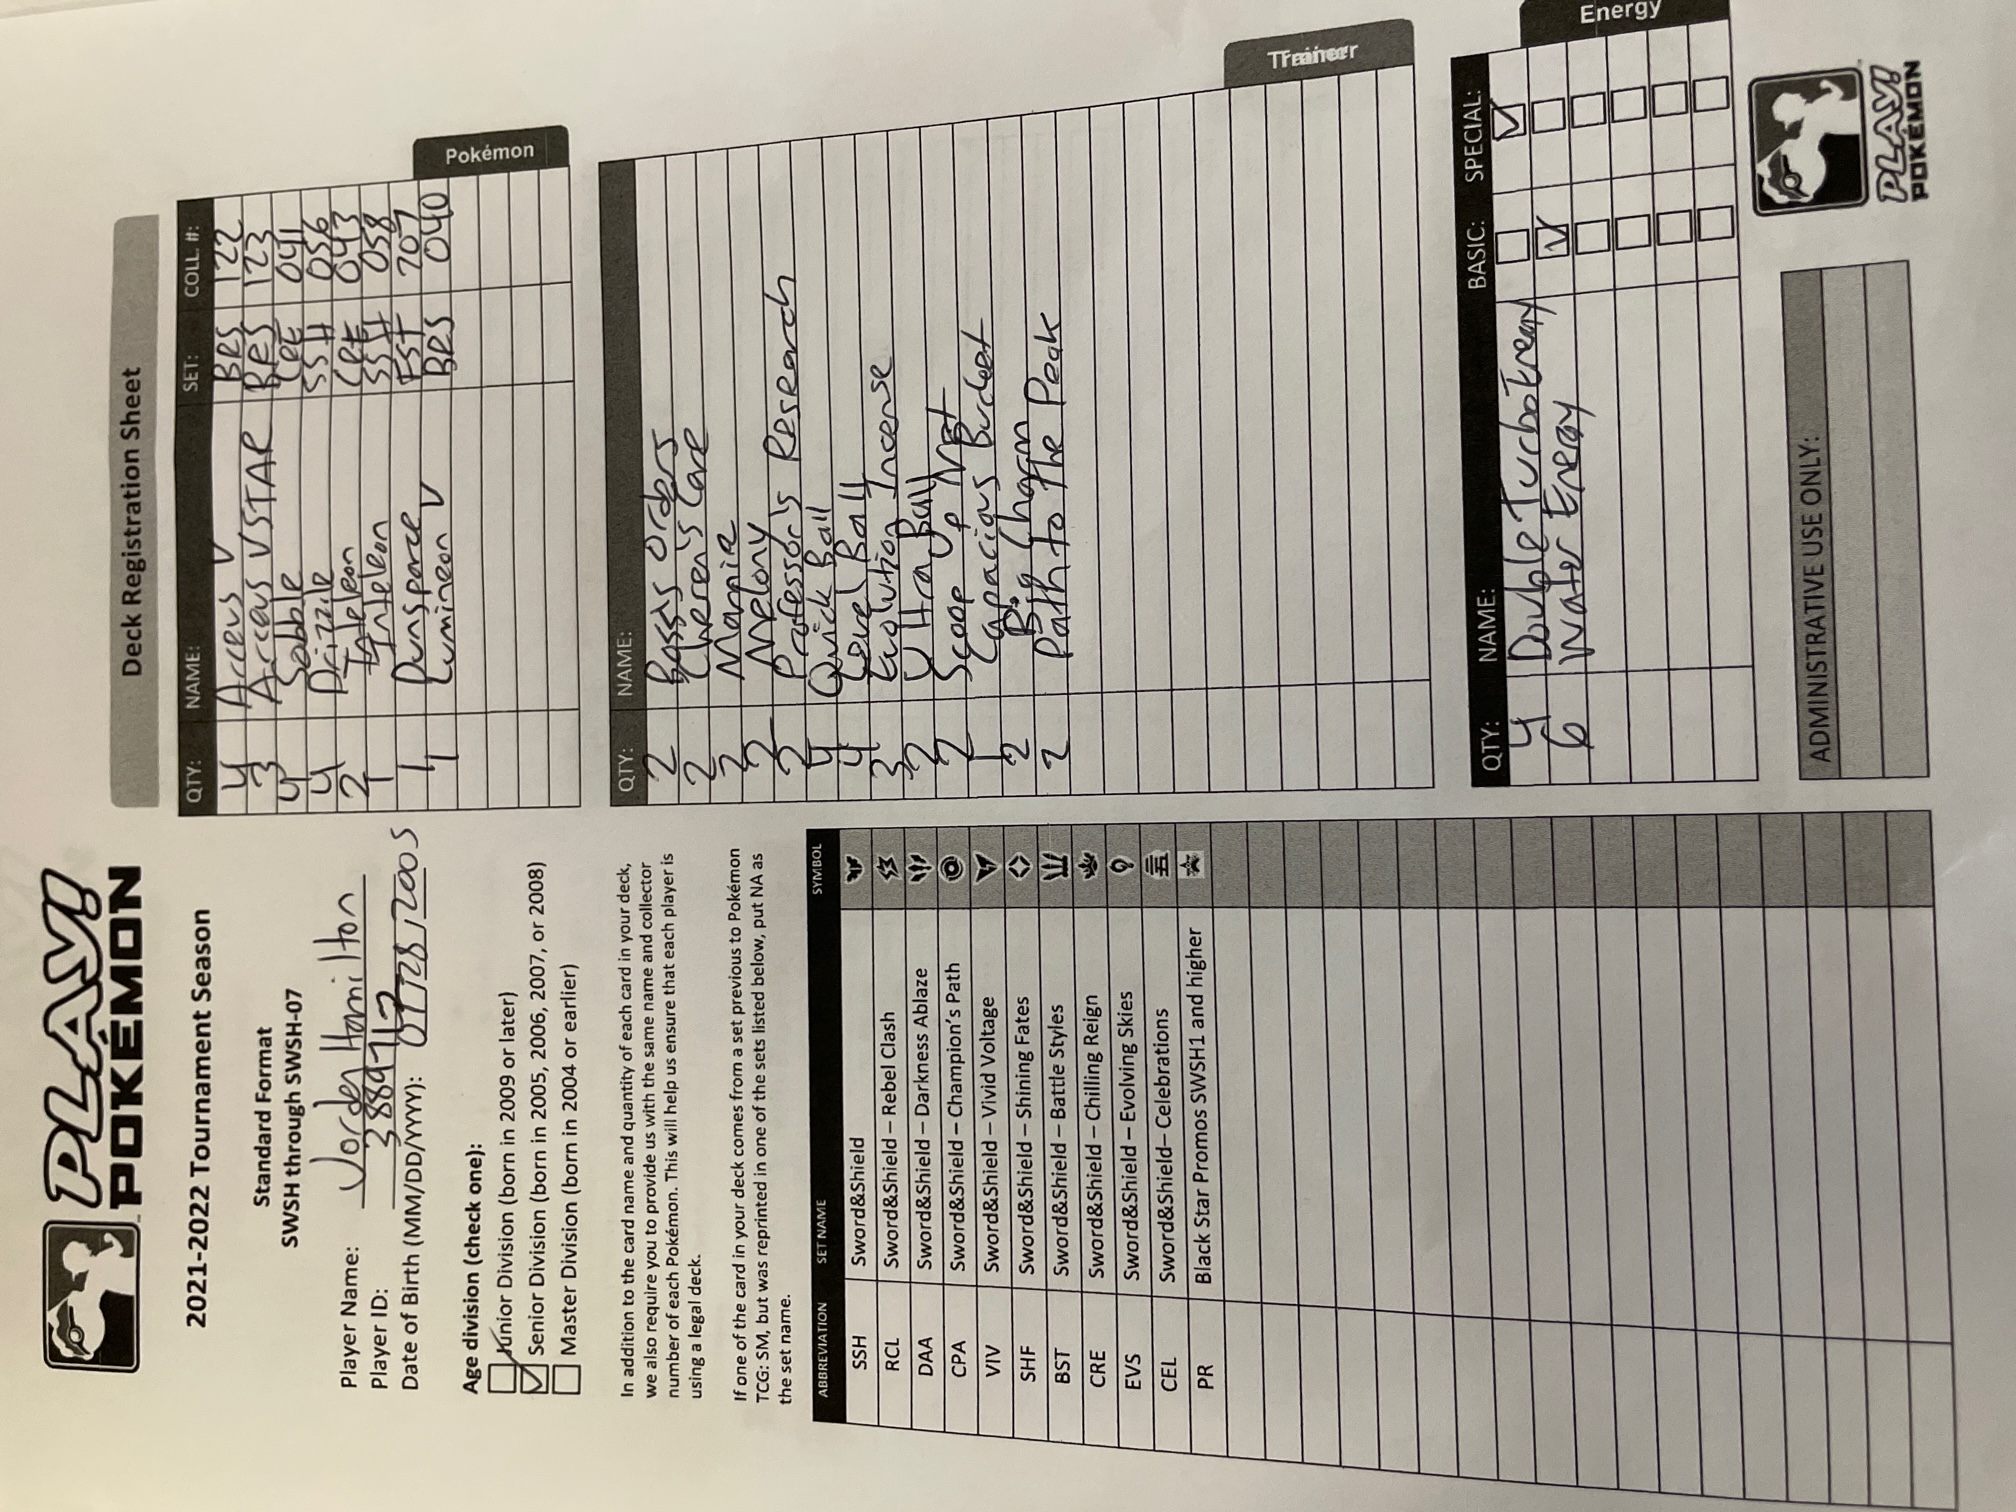 PLAY!
POKÉMON
2021-2022 Tournament Season
Standard Format
SWSH through SWSH-07
Player Name: Jorden Hamilton
Player ID: 3889712
Date of Birth (MM/DD/YYYY): 07/28/2005
Age division (check one):
Junior Division (born in 2009 or later)
Senior Division (born in 2005, 2006, 2007, or 2008)
Master Division (born in 2004 or earlier)
In addition to the card name and quantity of each card in your deck,
we also require you to provide us with the same name and collector
number of each Pokémon. This will help us ensure that each player is
using a legal deck.
If one of the card in your deck comes from a set previous to Pokémon
TCG: SM, but was reprinted in one of the sets listed below, put NA as
the set name.
ABBREVIATION SET NAME SYMBOL
SSH Sword&Shield
RCL Sword&Shield – Rebel Clash
DAA Sword&Shield – Darkness Ablaze
CPA Sword&Shield – Champion's Path
VIV Sword&Shield – Vivid Voltage
SHF Sword&Shield – Shining Fates
BST Sword&Shield – Battle Styles
CRE Sword&Shield – Chilling Reign
EVS Sword&Shield – Evolving Skies
CEL Sword&Shield– Celebrations
PR Black Star Promos SWSH1 and higher
Deck Registration Sheet
QTY: NAME: SET: COLL. #:
4 Arceus V BRS 122
3 Arceus VSTAR BRS 123
4 Sobble CRE 041
4 Drizzile SSH 056
2 Inteleon CRE 043
1 Inteleon SSH 058
1 Dunsparce FST 207
1 Lumineon V BRS 040
Pokémon
QTY: NAME:
2 Boss's Orders
2 Cheren's Care
2 Marnie
2 Melony
2 Professor's Research
4 Quick Ball
4 Level Ball
3 Evolution Incense
2 Ultra Ball
2 Scoop Up Net
1 Capacious Bucket
2 Big Charm
2 Path to the Peak
Trainer
QTY: NAME: BASIC: SPECIAL:
4 Double Turbo Energy
6 Water Energy
Energy
ADMINISTRATIVE USE ONLY:
PLAY!
POKÉMON